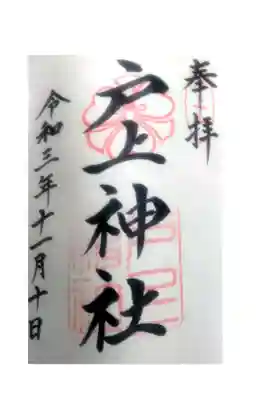 奉拝
戸上神社
令和三年十一月十日